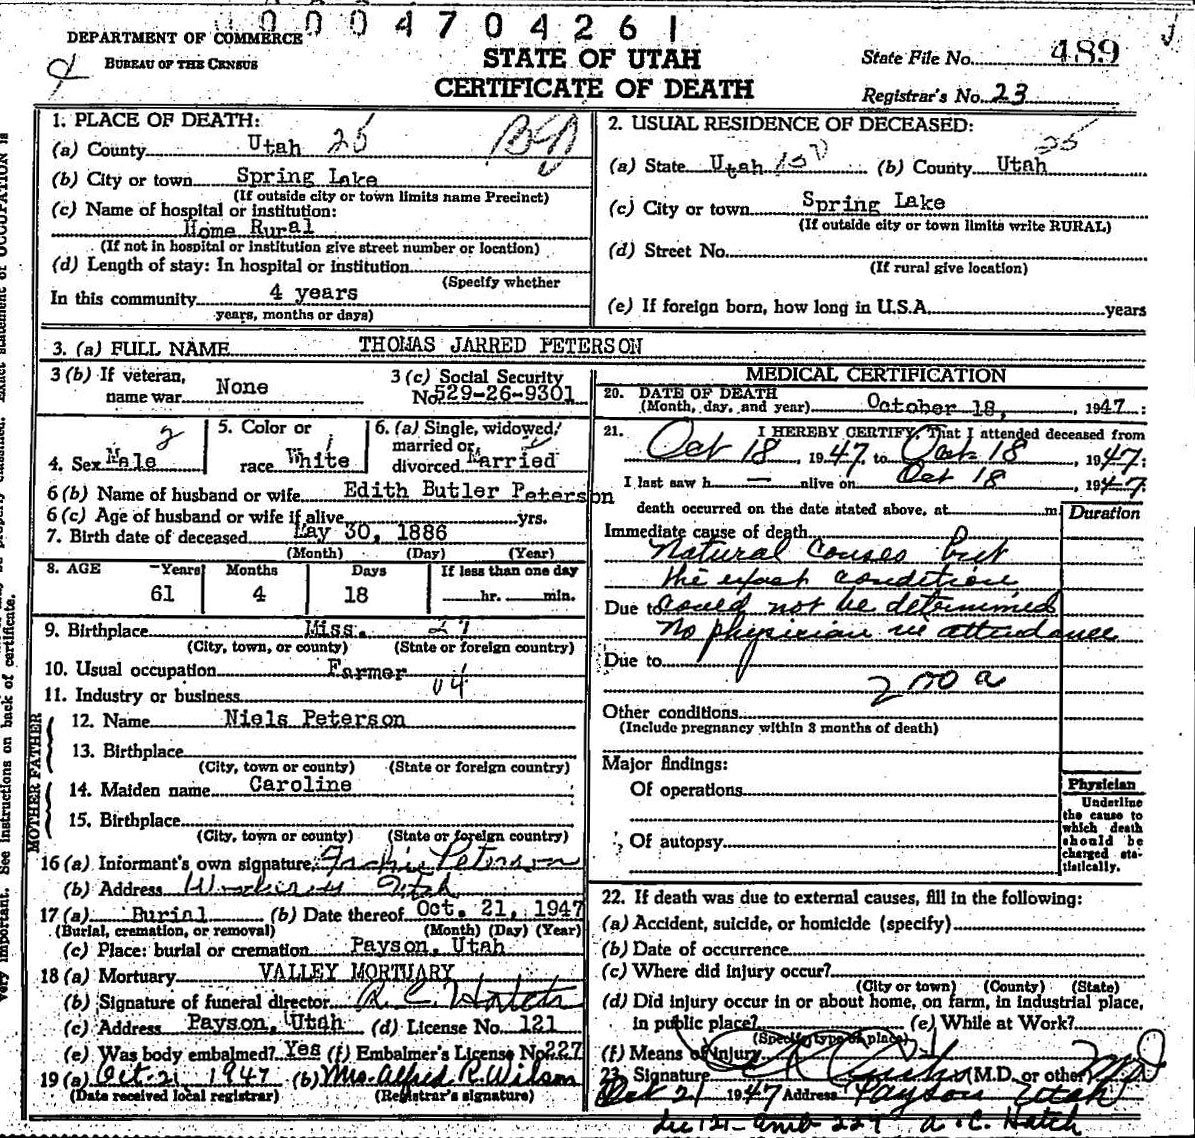 0004704261
DEPARTMENT OF COMMERCE
BUREAU OF THE CENSUS
STATE OF UTAH
CERTIFICATE OF DEATH
State File No. 489
Registrar's No. 23
1. PLACE OF DEATH:
(a) County Utah 25
(b) City or town Spring Lake
(If outside city or town limits name Precinct)
(c) Name of hospital or institution:
Home Rural
(If not in hospital or institution give street number or location)
(d) Length of stay: In hospital or institution
(Specify whether
In this community 4 years
years, months or days)
2. USUAL RESIDENCE OF DECEASED:
25
(a) State Utah (b) County Utah
(c) City or town Spring Lake
(If outside city or town limits write RURAL)
(d) Street No.
(If rural give location)
(e) If foreign born, how long in U.S.A. years
3. (a) FULL NAME THOMAS JARRED PETERSON
3 (b) If veteran, name war None
3 (c) Social Security No. 529-26-9301
4. Sex Male 2
5. Color or race White 1
6. (a) Single, widowed, married or divorced Married
6 (b) Name of husband or wife Edith Butler Peterson
6 (c) Age of husband or wife if alive yrs.
7. Birth date of deceased May 30, 1886
(Month) (Day) (Year)
8. AGE Years Months Days If less than one day
61 4 18 hr. min.
9. Birthplace Miss. 27
(City, town, or county) (State or foreign country)
10. Usual occupation Farmer
11. Industry or business 04
FATHER
12. Name Niels Peterson
13. Birthplace
(City, town or county) (State or foreign country)
MOTHER
14. Maiden name Caroline
15. Birthplace
(City, town or county) (State or foreign country)
16 (a) Informant's own signature Archie Peterson
(b) Address Utah
17 (a) Burial (b) Date thereof Oct. 21, 1947
(Burial, cremation, or removal) (Month) (Day) (Year)
(c) Place: burial or cremation Payson, Utah
18 (a) Mortuary VALLEY MORTUARY
(b) Signature of funeral director A. C. Hatch
(c) Address Payson, Utah (d) License No. 121
(e) Was body embalmed? Yes (f) Embalmer's License No. 227
19 (a) Oct-21 1947 (b) Mrs. Alfred R. Wilson
(Date received local registrar) (Registrar's signature)
MEDICAL CERTIFICATION
20. DATE OF DEATH
(Month, day, and year) October 18, 1947
21. I HEREBY CERTIFY, That I attended deceased from
Oct 18, 1947, to Oct 18, 1947;
I last saw h — alive on Oct 18, 1947;
death occurred on the date stated above, at m
Duration
Immediate cause of death
Natural Causes but
the exact condition
Due to could not be determined
No physician in attendance
Due to
200 a
Other conditions
(Include pregnancy within 3 months of death)
Major findings:
Of operations
Of autopsy
Physician
Underline
the cause to
which death
should be
charged sta-
tistically.
22. If death was due to external causes, fill in the following:
(a) Accident, suicide, or homicide (specify)
(b) Date of occurrence
(c) Where did injury occur?
(City or town) (County) (State)
(d) Did injury occur in or about home, on farm, in industrial place,
in public place? (e) While at Work?
(Specify type of place)
(f) Means of injury
23. Signature (M.D. or other) MD
Oct 21 1947 Address Payson Utah
Lic 121- Emb 227 A. C. Hatch
very important. See instructions on back of certificate.